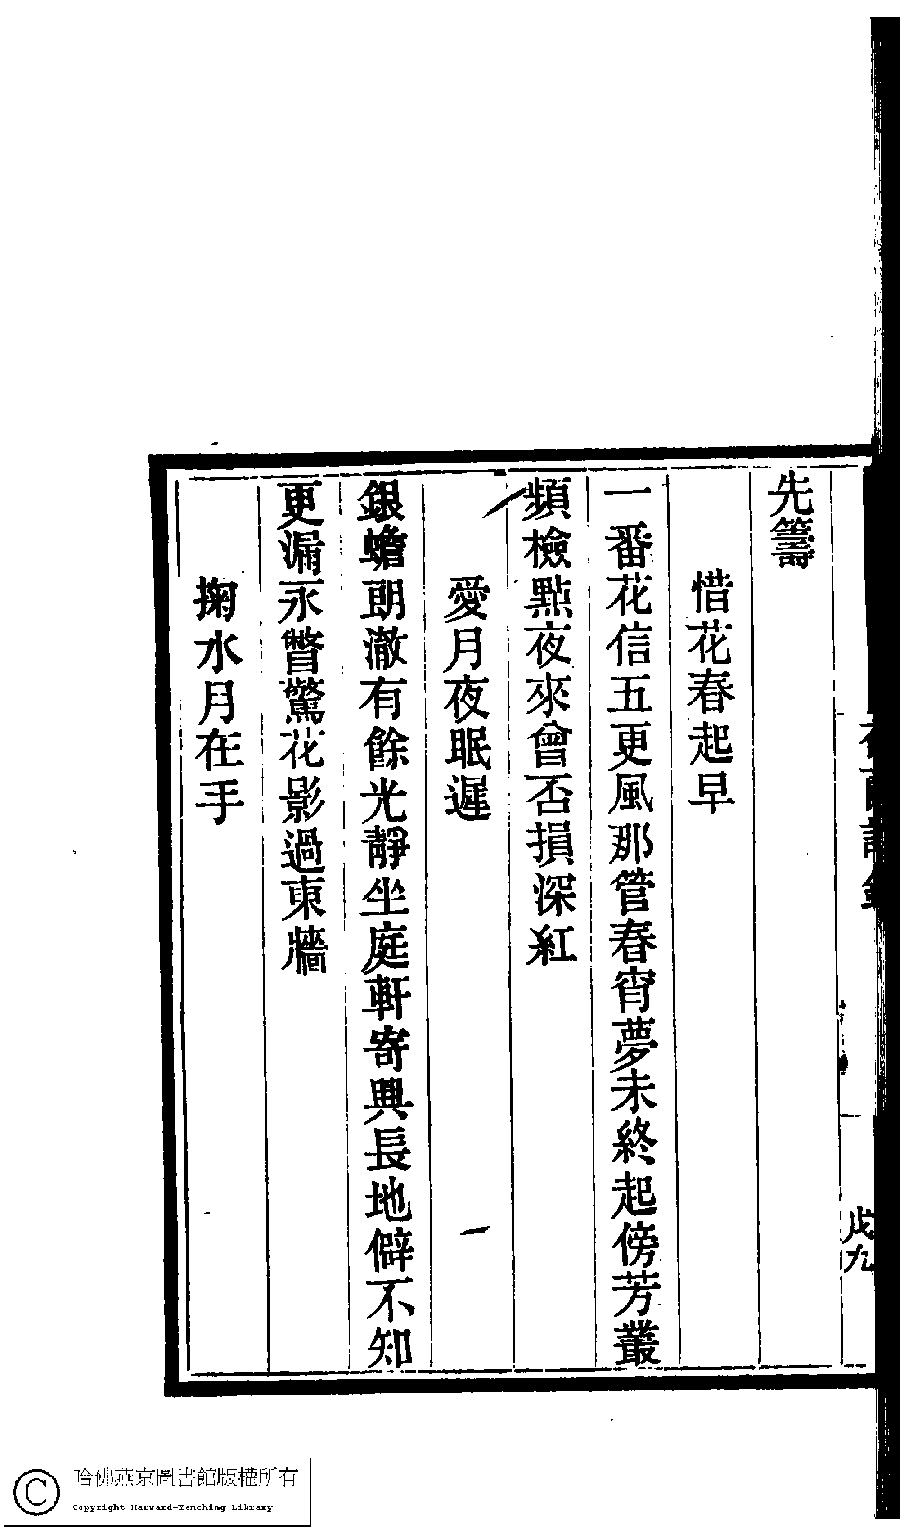 先籌
惜花春起早
一番花信五更風那管春宵夢未終起傍芳叢
頻檢點夜來曾否損深紅
愛月夜眠遲
銀蟾朗澈有餘光靜坐庭軒寄興長地僻不知
更漏永瞥驚花影過東牆
掬水月在手
戊九
哈佛燕京圖書館版權所有
Copyright Harvard-Yenching Library